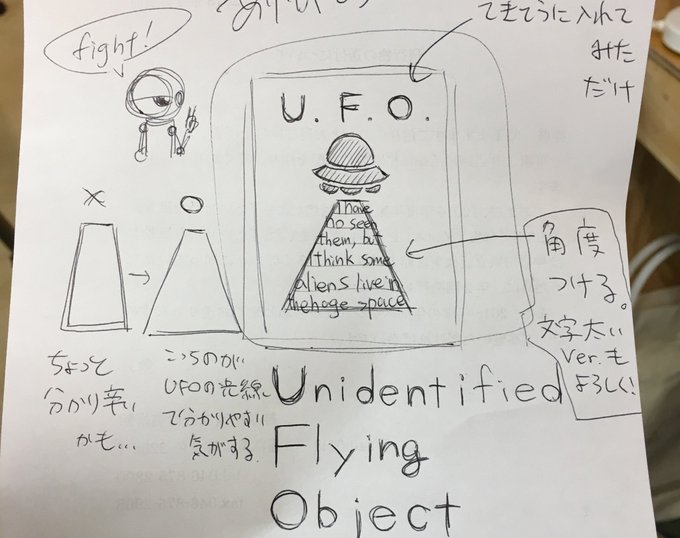 fight!
てきとうに入れて
みた
だけ
U. F. O.
I have
no seen
them, but
I think some
aliens live in
the hage space
×
○
→
角度
つける。
文字太い
ver.も
よろしく!
ちょっと
分かり辛い
かも...
こっちのが
UFOの光線
で分かりやすい
気がする
Unidentified
Flying
Object